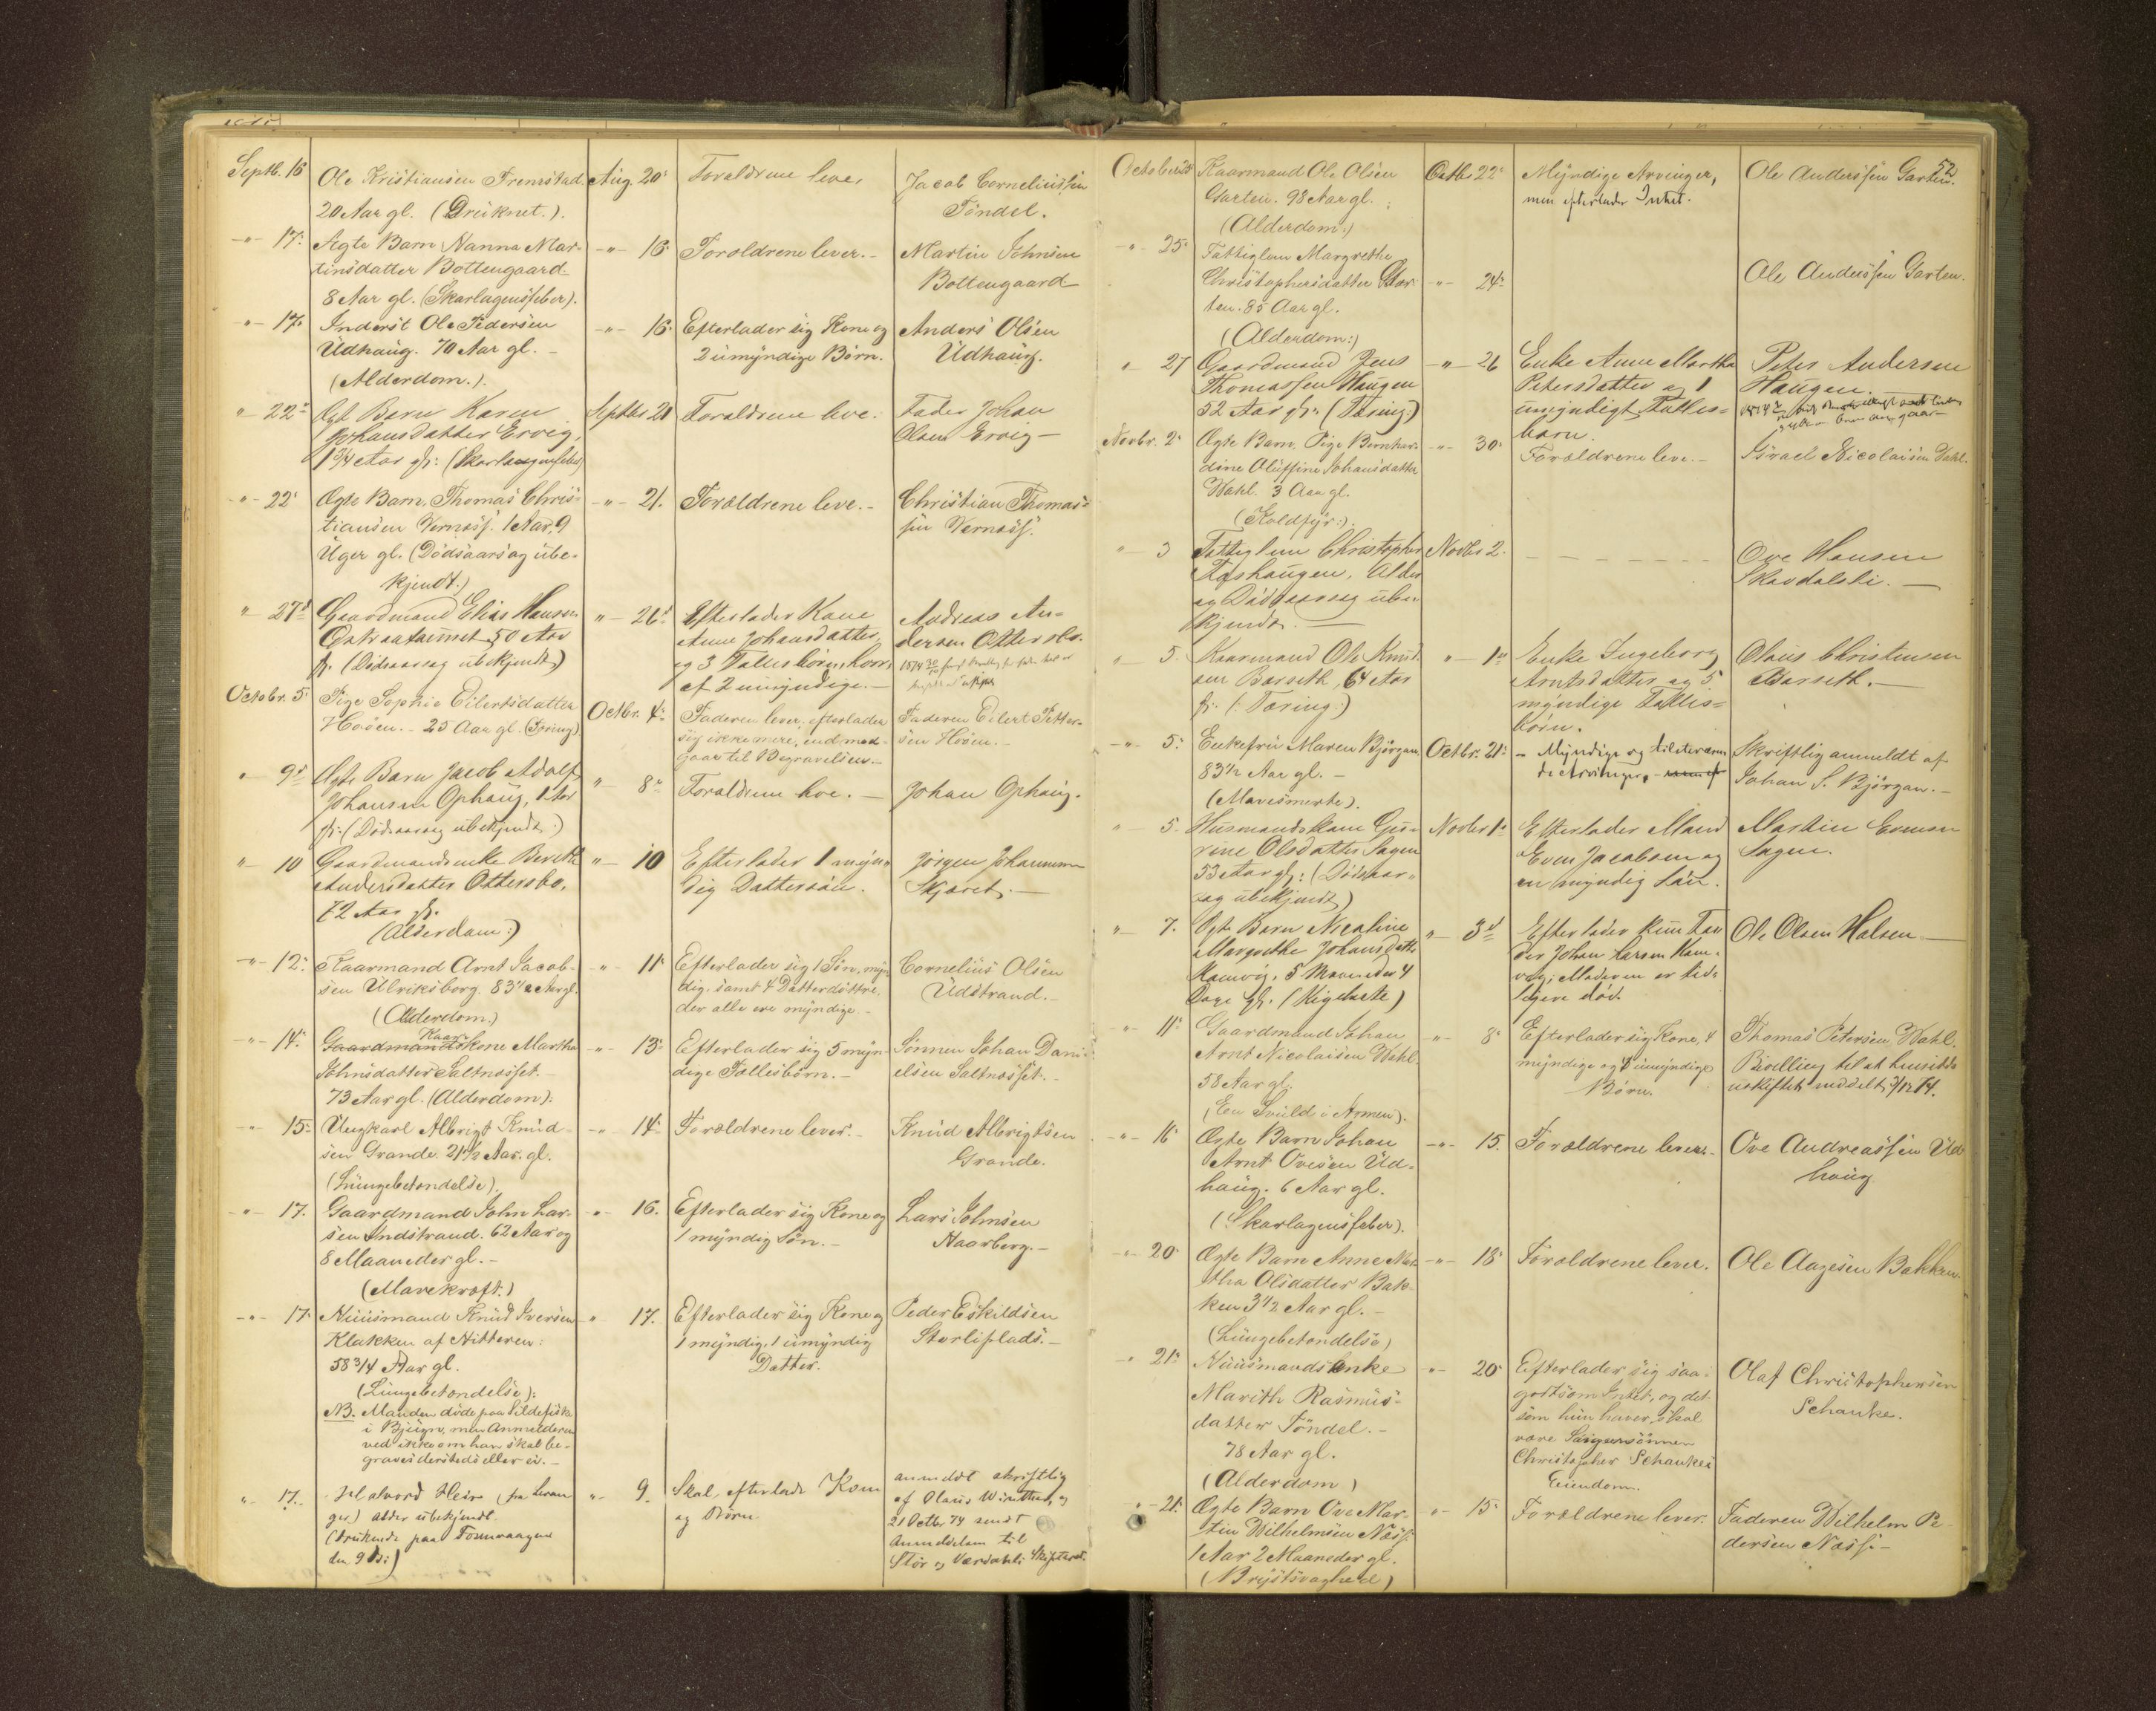 52.
Septb. 16
Ole Kristiansen Fremstad.
20 Aar gl. (Drüknet.).
Aug. 20
Forældrene leve.
Jacob Corneliussen
Töndel.
-"- 17.
Ægte Barn Nanna Mar-
tinsdatter Bottengaard
8 Aar gl. (Skarlagensfeber).
-"- 16
Foroldrene lever.-
Martin Johnsen
Bottengaard
-"- 17.
Inderst Ole Pedersen
Üdhaüg. 70 Aar gl. -
(Alderdom.).
-"- 16.
Efterlader sig Kone og
2 ümyndige Börn.
Anders Olsen
Üdhaüg.
" 22
Ægt Barn Karen
Johansdatter Ervig,
1 3/4 Aar gl: (Skarlagensfeber)
Septbr 21
Forældrene leve.
Fader Johan
Olsen Ervig -
-"- 22
Ægte Barn, Thomas Chris-
tiansen Vernæss. 1 Aar, 9
Üger gl. (Dödsaarsag übe-
kjendt.)
-"- 21.
Foroldrene leve.-
Christian Thomas-
sen Vernæss.
" 27
Gaardmand Elias Hansen
50 Aar
gl. (Dödsaarsag übekjendt)
" - 26
Efterlader Kone
Anne Johansdatter,
og 3 Fællesbörn, hvor-
af 2 umyndige.-
Andreas An-
dersen Ottersbo.
Octobr. 5
Pige Sophie Eilertsdatter
Hoöen. - 25 Aar gl. (Tæring)
Octbr. 4
Faderen lever, efterlader
sig ikke mere, end med-
gaar til Begravelsen.-
Faderen Eilert Petter-
sen Hoöen.-
" 9
Ægte Barn Jacob Adolf
Johansen Ophaüg, 1 Aar
gl. (Dödsaarsag übekjendt.)
" 8
Forældrene leve. -
Johan Ophaüg.
" 10
Gaardmandsenke Bereth
Andersdatter Ottersbo,
72 Aar gl.
(Alderdom:)
" - 10
Efterlader 1 myn-
dig Dattersön.
Jörgen Johannesen
Skjæret. -
-"- 12.
Kaarmand Arnt Jacob-
sen Ülriksborg. 83 1/2 Aar gl.
(Alderdom.)
-"- 11
Efterlader sig 1 Sön, myn-
dig, samt 4 Datterdöttre,
der alle ere myndige -
Cornelius Olsen
Üdstrand.-
-"- 14.
Kaar-
Gaardmandskone Martha
Johnsdatter Saltnæsset.-
73 Aar gl. (Alderdom).
-"- 13
Efterlader sig 5 myn-
dige Fællesbörn.-
Sönnen Johan Dani-
elsen Saltnæsset.-
-"- 15
Ungkarl Albrigt Knüd-
sen Grande. 21 1/2 Aar gl.
(Lüngebetændelse).
-"- 14
Forældrene lever.-
Knüd Albrigtsen
Grande.
-"- 17.
Gaardmand John Lar-
sen Indstrand. 62 Aar og
8 Maaneder gl.-
(Mavekræft.)
-"- 16.
Efterlader sig Kone og
1 myndig Sön.-
Lars Johnsen
Haarberg.-
-"- 17.
Hüüsmand Knüd Iversen
Klakken af Hitteren.
58 3/4 Aar gl.
(Lüngebetændelse).
NB. Manden döde paa Sildefiske
i Bjügn, men Anmelderen
ved ikke om han skal be-
graves dersteds eller ei.-
" 17.
Efterlader sig Kone og
1 myndig, 1 ümyndig
Datter.
Peder Eskildsen
Storliplads.-
-"- 17.
Halvord Hein (fra Levan-
ger) alder übekjendt.
(drüknede paa
den 9 ds:)
" 9.
Skal efterlade Kone
og Börn.
anmeldt skriftlig
af Olaus Winther, og
21 Octbr 74 sendt
Anmeldelsen til
Stör og Værdals Skifteret.
Kaarmand Ole Olsen
Garten. 98 Aar gl.
(Alderdom.)
Octbr 22
Myndige Arvinger,
men efterlader Intet.
Ole Anderssen Garten.
-"- 25
Fattiglem Margrethe
Christophersdatter Gar-
ten. 85 Aar gl.
(Alderdom:)
-"- 24
Ole Anderssen Garten.
" 27
Gaardmand Jens
Thomassen Haügen
52 Aar gl. (Tæring.)
-"- 26
Enke Anne Martha
Petersdatter og 1
umyndigt Fælles-
barn.
Peter Andersen
Haügen.
Novbr. 2
Ægte Barn, Pige Bernhar-
dine Olüffine Johansdatter
Wahl. 3 Aar gl.
(Koldfyr.).
-"- 30
Forældrene leve.-
Israel Nicolaisen Dahl.
" 3
Fattiglem Christopher
Alder
og Dödsaarsag übe-
kjendt. -
Novbr 2.
- - - - - -
Ove Hansen
Skavdalslie. -
" 5
Kaarmand Ole Knud-
sen Barseth, 64 Aar
gl. (: Tæring:)
" - 1
Enke Ingeborg
Arntsdatter og 5
myndige Fælles-
börn.
Olaus Christensen
Barseth. -
-"- 5.
Enkefrü Maren Bjorgan
83 1/2 Aar gl. -
(Mavesmerte).
Octbr. 21
- Myndige og tilstede være-
de Arvinger.-
Skriftlig anmeldt af
Johan S. Bjorgan.-
" 5.
Husmandskone Gu-
rine Olsdatter Sagen
53 Aar gl: (Dödsaar-
sag übekjendt)
Novbr 1
Efterlader Mand
Even Jacobsen og
en myndig Sön.
Martin Evensen
Sagen.
" 7.
Ægte Barn Nicoline
Margrethe Johansdatter
5 Maaneder 4
Dage gl. (Kighoste)
" 3
Efterlader kun Fa-
der Johan Larsen
Moderen er tid-
ligere död.
Ole Olsen Halsen -
-"- 11
Gaardmand Johan
Arnt Nicolaisen Wahl.
58 Aar gl.
(En Svüld i Armen).
-"- 8
Efterlader sig Kone, 4
myndige og 4 ümyndige
Börn.
Thomas Petersen Wahl.
Bevilling til at hensidde
i uskiftet meddelt 3/12 74.
-"- 16
Ægte Barn Johan
Arnt Ovesen Üd-
haüg. 6 Aar gl.
(Skarlagensfeber).
-"- 15.
Forældrene lever.-
Ove Andreassen Üd-
haüg
-"- 20
Ægte Barn Anne Mar-
tha Olsdatter Bak-
ken 3 1/2 Aar gl.-
(Lüngebetændelse)
-"- 18
Forældrene lever.
Ole Aagesen Bakken.
-"- 21
Hüüsmandsenke
Marith Rasmüs-
datter Töndel.-
78 Aar gl.
(Alderdom)
-"- 20
Efterlader sig saa-
godtsom Intet, og det
som hün haver, skal
være
Christopher Schankes
Eiendom.
Olaf Christophersen
Schanke.
-"- 21.
Ægte Barn Ove Mar-
tin Wilhelmsen Næss.
1 Aar 2 Maaneder gl.
(Brystsvaghed)
-"- 15
Forældrene lever.
Faderen Wilhelm Pe-
dersen Næss.-